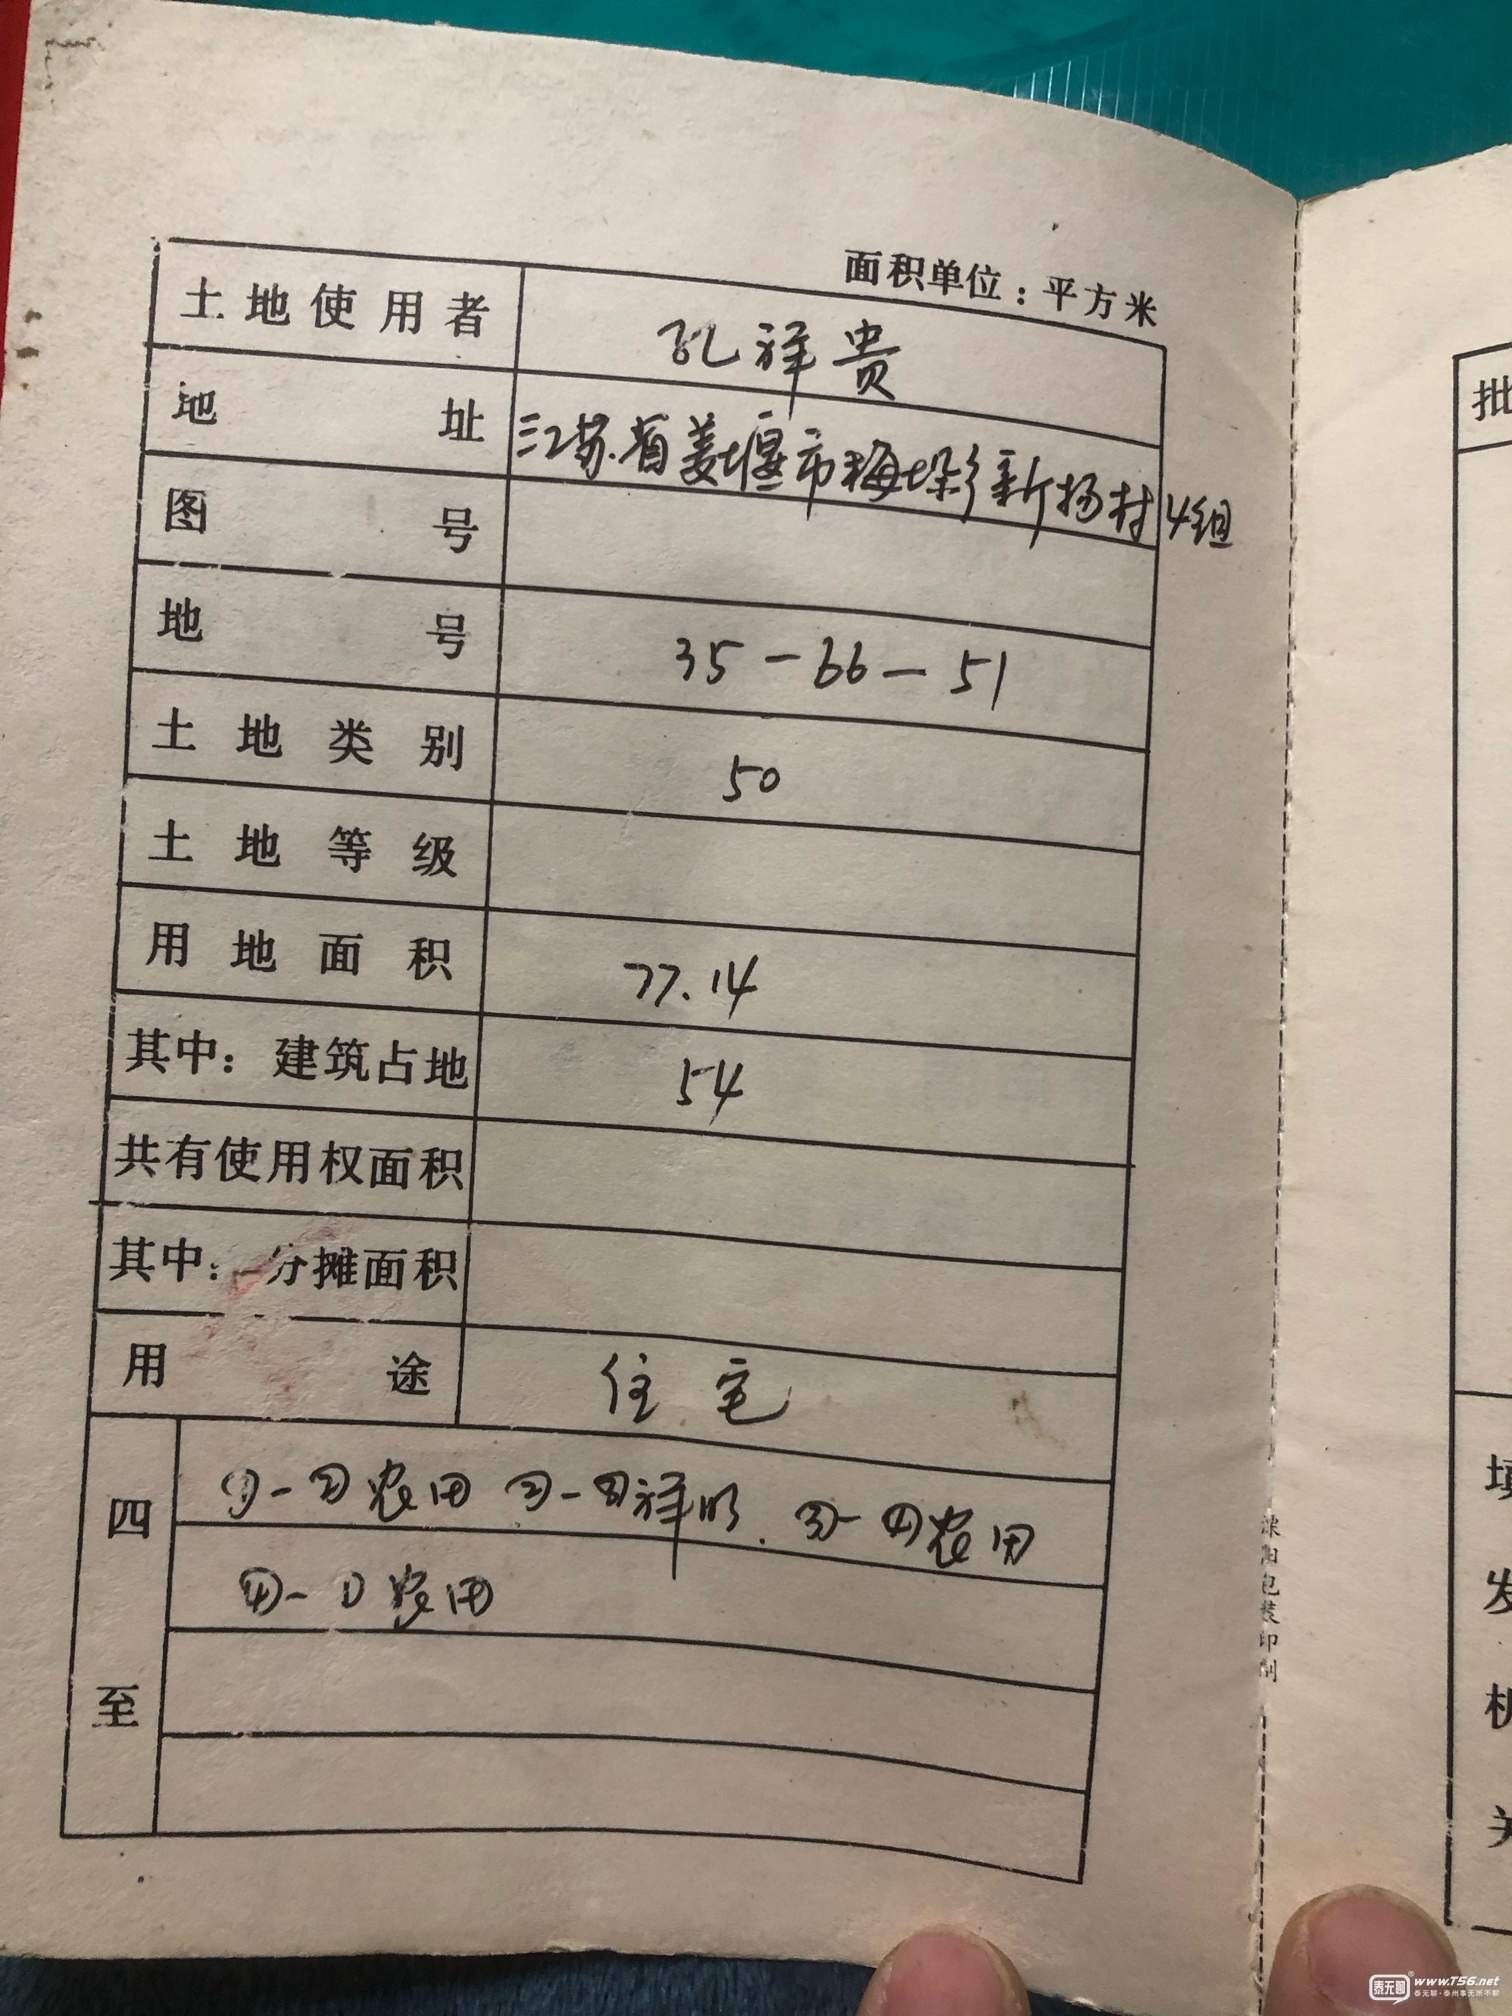 面积单位：平方米
土地使用者 孔祥贵
地址 江苏省姜堰市梅垛乡新扬村4组
图号
地号 35-66-51
土地类别 50
土地等级
用地面积 77.14
其中：建筑占地 54
共有使用权面积
其中：分摊面积
用途 住宅
四至
①-②农田 ②-③祥明. ③-④农田
④-①农田
批
填
发
机
关
溧阳包装印刷
泰无聊 www.T56.net
泰无聊·泰州事无所不聊